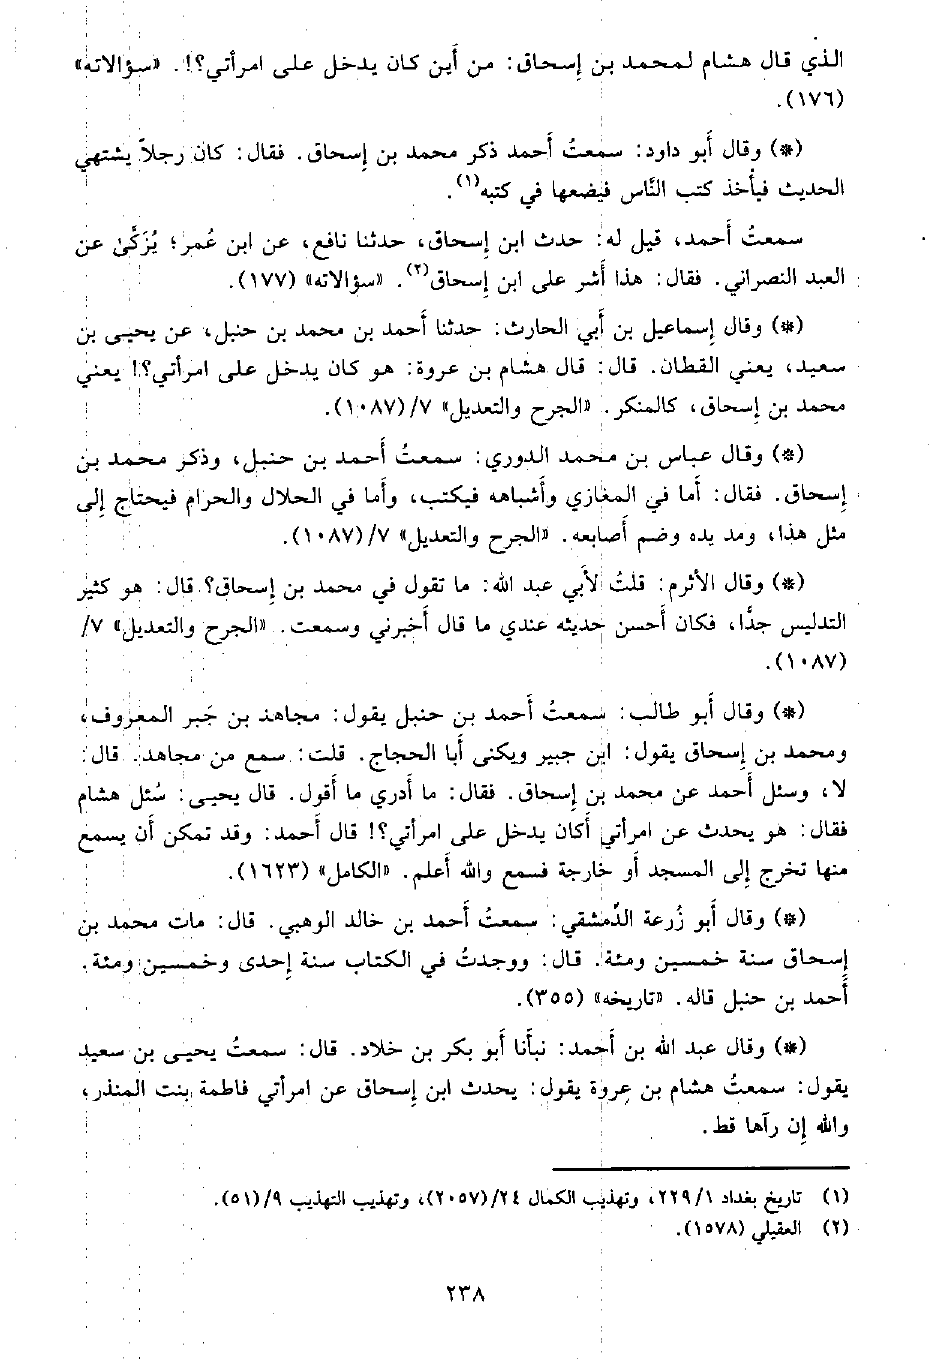 الذي قال هشام لمحمد بن إسحاق: من أَين كان يدخل على امرأتي؟!. «سؤالاته»
(١٧٦).
(*) وقال أَبو داود: سمعتُ أَحمد ذكر محمد بن إسحاق. فقال: كان رجلاً يشتهي
الحديث فيأخذ كتب النَّاس فيضعها في كتبه(١).
سمعتُ أَحمد، قيل له: حدث ابن إسحاق، حدثنا نافع، عن ابن عُمر؛ يُزَكَّىٰ عن
العبد النصراني. فقال: هذا أَشر على ابن إسحاق(٢). «سؤالاته» (١٧٧).
(*) وقال إسماعيل بن أَبي الحارث: حدثنا أَحمد بن محمد بن حنبل، عن يحيى بن
سعيد، يعني القطان. قال: قال هشام بن عروة: هو كان يدخل على امرأتي؟! يعني
محمد بن إسحاق، كالمنكر. «الجرح والتعديل» ٧/(١٠٨٧).
(*) وقال عباس بن محمد الدوري: سمعتُ أَحمد بن حنبل، وذكر محمد بن
إسحاق. فقال: أَما في المغازي وأَشباهه فيكتب، وأَما في الحلال والحرام فيحتاج إلى
مثل هذا، ومد يده وضم أَصابعه. «الجرح والتعديل» ٧/(١٠٨٧).
(*) وقال الأثرم: قلتُ لأَبي عبد الله: ما تقول في محمد بن إسحاق؟ قال: هو كثير
التدليس جدًّا، فكان أَحسن حديثه عندي ما قال أَخبرني وسمعت. «الجرح والتعديل» ٧/
(١٠٨٧).
(*) وقال أَبو طالب: سمعتُ أَحمد بن حنبل يقول: مجاهد بن جَبر المعروف،
ومحمد بن إسحاق يقول: ابن جبير ويكنى أَبا الحجاج. قلت: سمع من مجاهد. قال:
لا، وسئل أَحمد عن محمد بن إسحاق. فقال: ما أَدري ما أَقول. قال يحيى: سُئل هشام
فقال: هو يحدث عن امرأتي أَكان يدخل على امرأتي؟! قال أَحمد: وقد تمكن أَن يسمع
منها تخرج إلى المسجد أَو خارجة فسمع والله أَعلم. «الكامل» (١٦٢٣).
(*) وقال أَبو زُرعة الدِّمشقي: سمعتُ أَحمد بن خالد الوهبي. قال: مات محمد بن
إسحاق سنة خمسين ومئة. قال: ووجدتُ في الكتاب سنة إحدى وخمسين ومئة.
أَحمد بن حنبل قاله. «تاريخه» (٣٥٥).
(*) وقال عبد الله بن أَحمد: نبأنا أَبو بكر بن خلاد. قال: سمعتُ يحيى بن سعيد
يقول: سمعتُ هشام بن عروة يقول: يحدث ابن إسحاق عن امرأتي فاطمة بنت المنذر،
والله إن رآها قط.
(١) تاريخ بغداد ٢٢٩/١، وتهذيب الكمال ٢٤/(٢٠٥٧)، وتهذيب التهذيب ٩/(٥١).
(٢) العقيلي (١٥٧٨).
٢٣٨